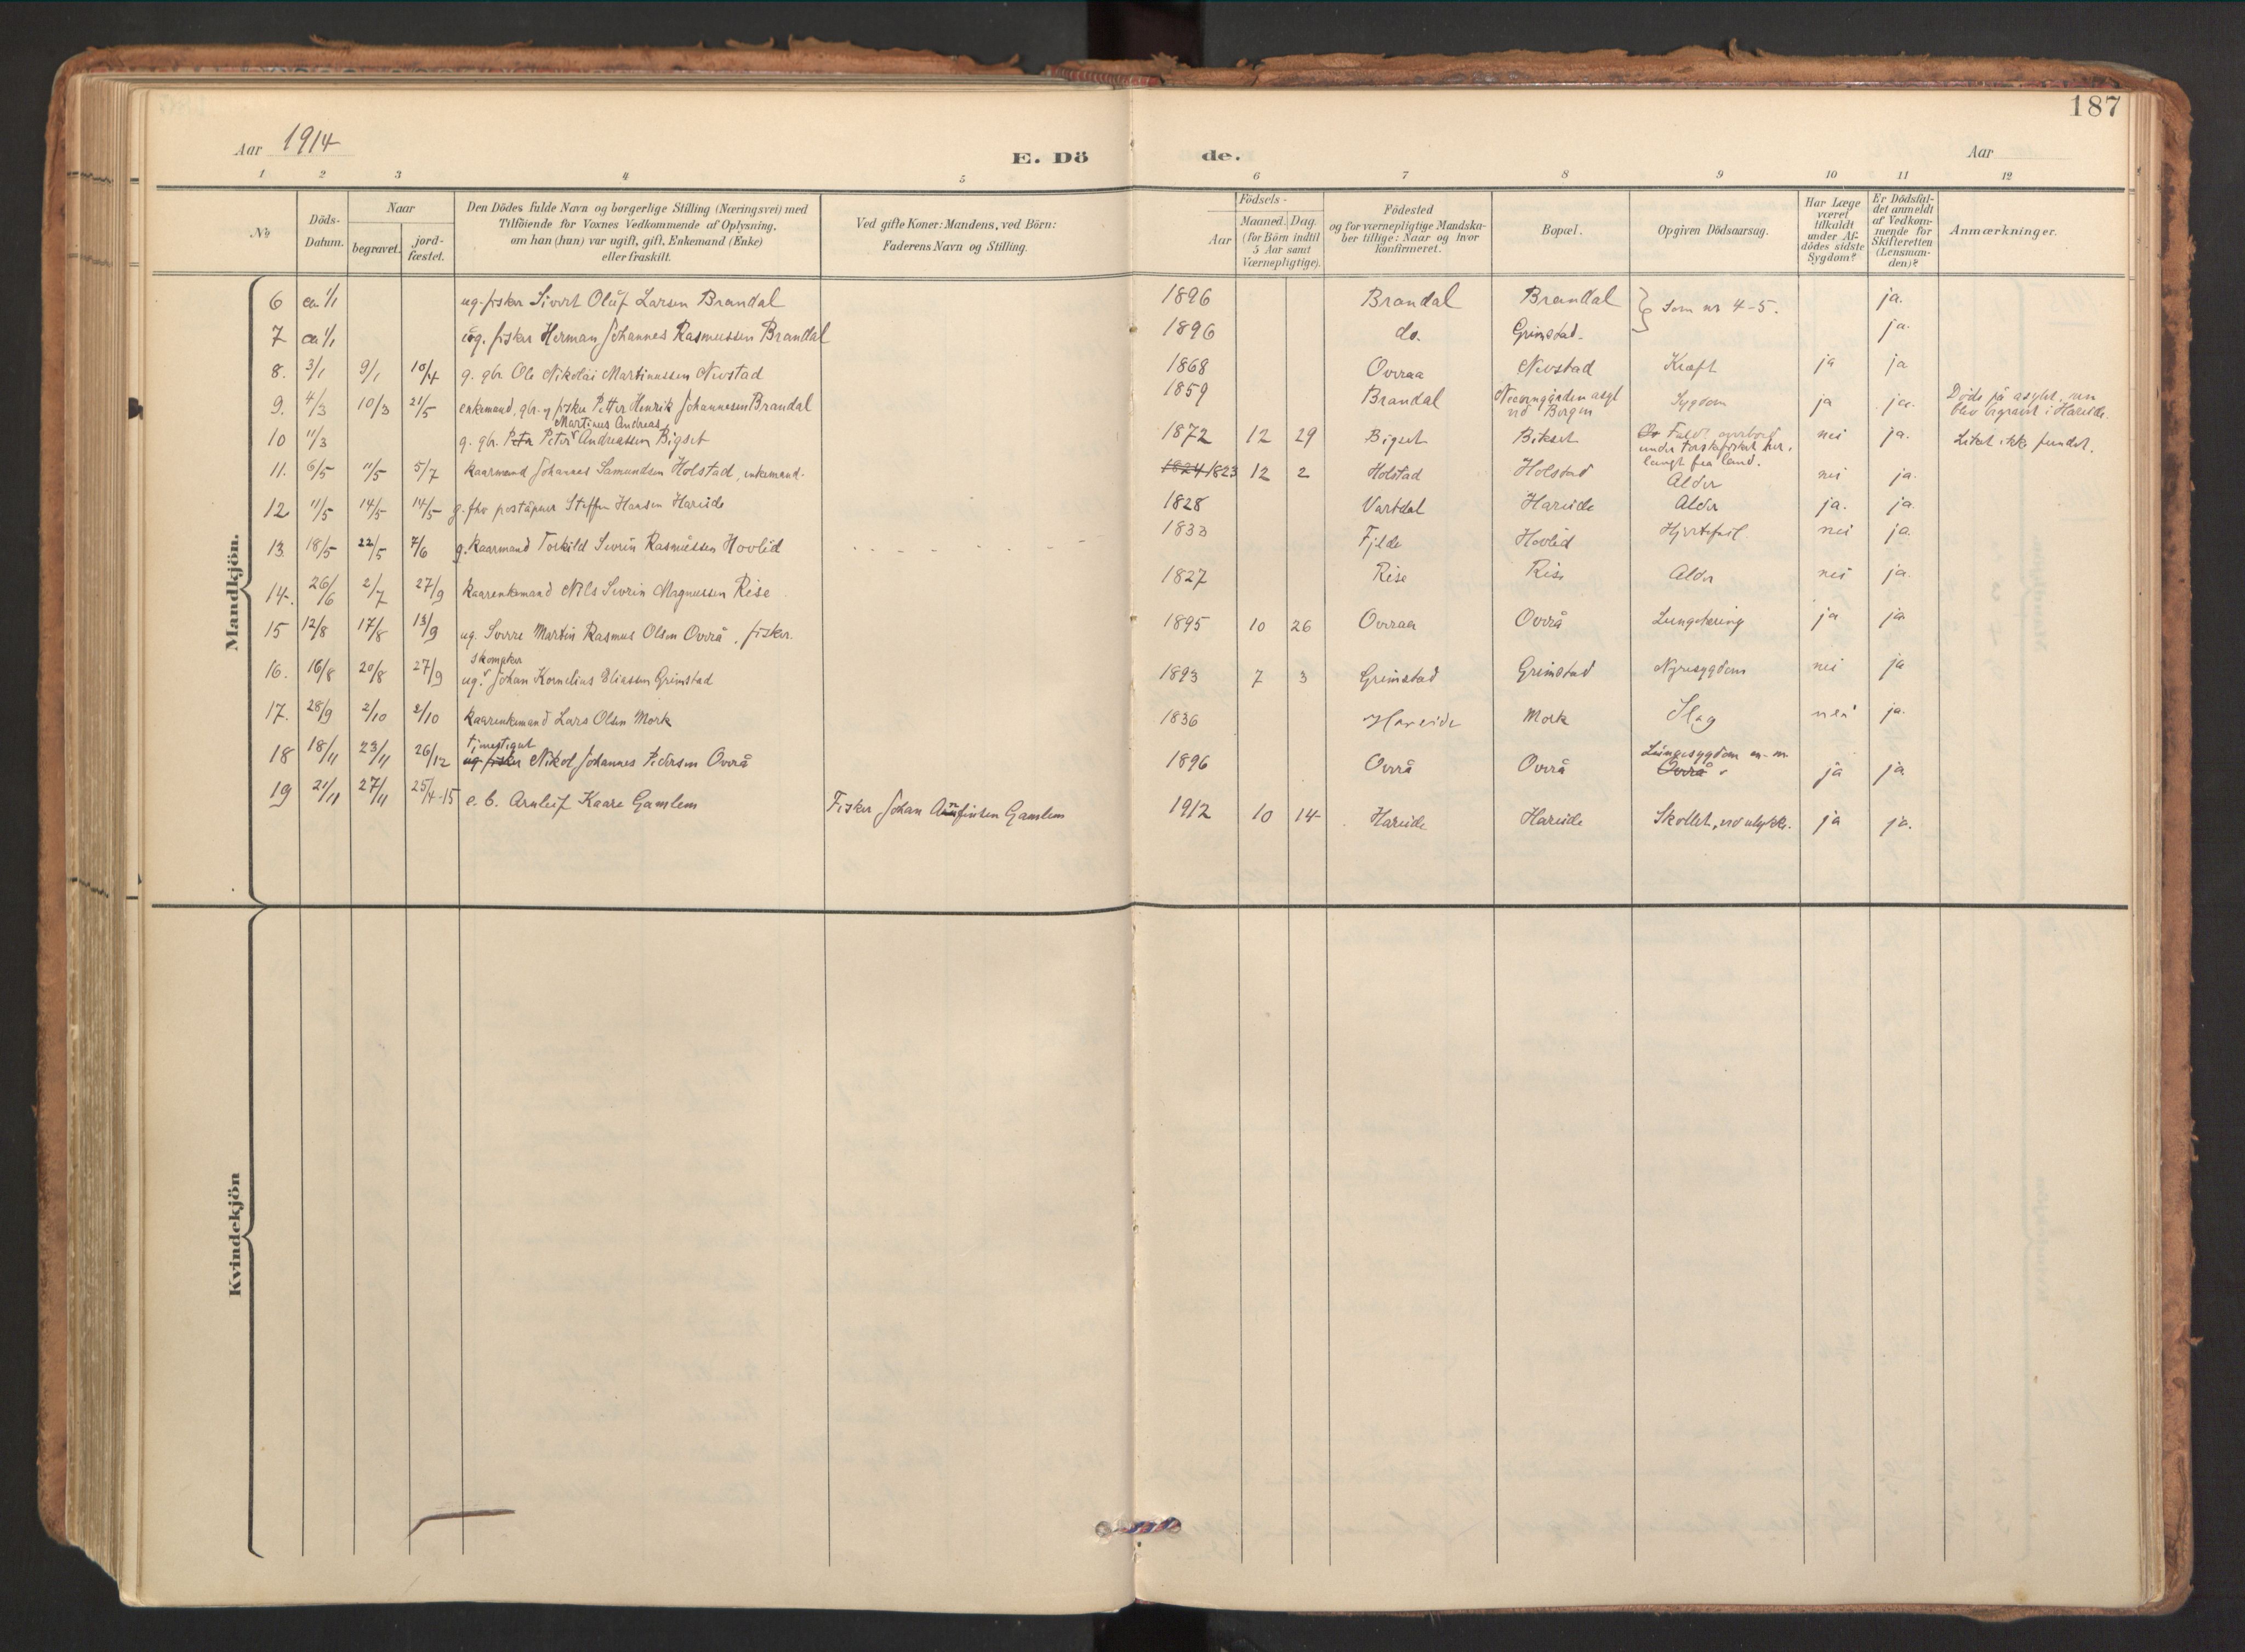 187
Aar 1914
E. Dö de.
Aar
1 2 3 4 5 6 7 8 9 10 11 12
No
Döds-Datum.
Naar
begravet.
jord-fæstet.
Den Dödes fulde Navn og borgerlige Stilling (Næringsvei) med
Tilföiende for Voxnes Vedkommende af Oplysning,
om han (hun) var ugift, gift, Enkemand (Enke)
eller fraskilt.
Ved gifte Koner: Mandens, ved Börn:
Faderens Navn og Stilling.
Födsels-
Aar
Maaned. Dag
(for Börn indtil
5 Aar samt
Værnepligtige).
Födested
og for værnepligtige Mandska-
ber tillige: Naar og hvor
konfirmeret.
Bopæl.
Opgiven Dödsaarsag.
Har Læge
været
tilkaldt
under Af-
dödes sidste
Sygdom?
Er Dödsfal-
det anmeldt
af Vedkom-
mende for
Skifteretten
(Lensman-
den)?
Anmærkninger.
Mandkjön.
6 ca. 1/1 ug. fisker Sivert Oluf Larsen Brandal 1896 Brandal Brandal Som nr 4-5. ja.
7 ca 1/1 ug. fisker Herman Johannes Rasmussen Brandal 1896 do. Grimstad. ja.
8. 3/1 9/1 10/4 g. gbr. Ole Nikolai Martinussen Nevstad 1868 Overaa Nevstad Kræft ja ja
9. 4/3 10/3 21/5 enkemand, gbr. og fisker Petter Henrik Johannesen Brandal 1859 Brandal Neevengården asyl ved Bergen Sygdom ja ja. Døde på asylet, men blev begravet i Hareide.
Martinus Andreas
10 11/3 g. gbr. Peter Andreassen Bigset 1872 12 29 Bigset Bikset Faldt overbord under torskefisket her, langt fra land. nei ja. Liket ikke fundet.
11. 6/5 11/5 5/7 Kaarmand Johannes Samundsen Holstad, enkemand. 1824 1823 12 2 Holstad Holstad Alder nei ja.
12 11/5 14/5 14/5 g. fhv poståpner Steffen Hansen Hareide 1828 Vartdal Hareide Alder ja. ja.
13 18/5 22/5 7/6 g. Kaarmand Torkild Severin Rasmussen Hovlid 1833 Fjelde Hovlid Hjertefeil nei ja.
14. 26/6 2/7 27/9 kaarenkemand Nils Severin Magnussen Rise 1827 Rise Rise Alder nei ja.
15 12/8 17/8 13/9 ug. Sverre Martin Rasmus Olsen Overå, fisker. 1895 10 26 Overaa Overå Lungetæring ja ja
skomaker
16. 16/8 20/8 27/9 ug. Johan Kornelius Eliassen Grimstad 1893 7 3 Grimstad Grimstad Nyresygdom nei ja
17. 28/9 2/10 2/10 kaarenkemand Lars Olsen Mork 1836 Hareide Mork Slag nei ja.
tjenestegut
18 18/11 23/11 26/12 ug fisker Nikol Johannes Pedersen Overå 1896 Overå Overå Lungesygdom m. m. Overå ja ja
19 21/11 27/11 25/4-15 e. b. Arnleif Kaare Gamlem Fisker Johan Arnfinsen Gamlem 1912 10 14 Hareide Hareide Skoldet, ved ulykke. ja ja.
Kvindekjön